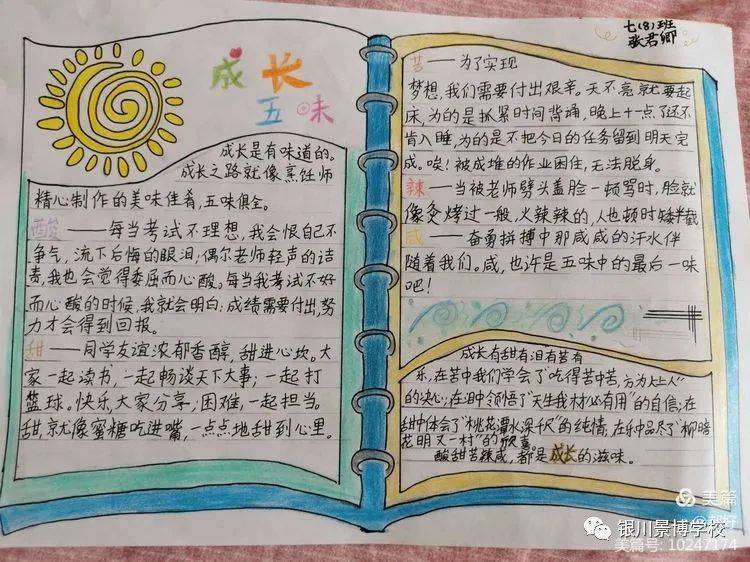 七(8)班
张君卿
成长
五味
成长是有味道的。
成长之路就像烹饪师
精心制作的美味佳肴，五味俱全。
酸——每当考试不理想，我会恨自己不
争气，流下后悔的眼泪；偶尔老师轻声的诘
责，我也会觉得委屈而心酸。每当我考试不好
而心酸的时候，我就会明白：成绩需要付出，努
力才会得到回报。
甜——同学友谊浓郁香醇，甜进心坎。大
家一起读书，一起畅谈天下大事，一起打
篮球。快乐，大家分享，困难，一起担当。
甜，就像蜜糖吃进嘴，一点点地甜到心里。
苦——为了实现
梦想，我们需要付出艰辛。天不亮就要起
床，为的是抓紧时间背诵，晚上十一点了还不
肯入睡，为的是不把今日的任务留到明天完
成。唉！被成堆的作业困住，无法脱身。
辣——当被老师劈头盖脸一顿骂时，脸就
像灸烤过一般，火辣辣的，人也顿时矮半截
咸——奋勇拼搏中那咸咸的汗水伴
随着我们。咸，也许是五味中的最后一味
吧！
成长有甜有泪有苦有
乐，在苦中我们学会了“吃得苦中苦，方为人上人”
的决心；在泪中领悟了“天生我材必有用”的自信；在
甜中体会了“桃花潭水深千尺”的纯情，在乐中品尽了“柳暗
花明又一村”的欣喜
酸甜苦辣咸，都是成长的滋味。
美篇
银川景博学校
美篇号：10247174